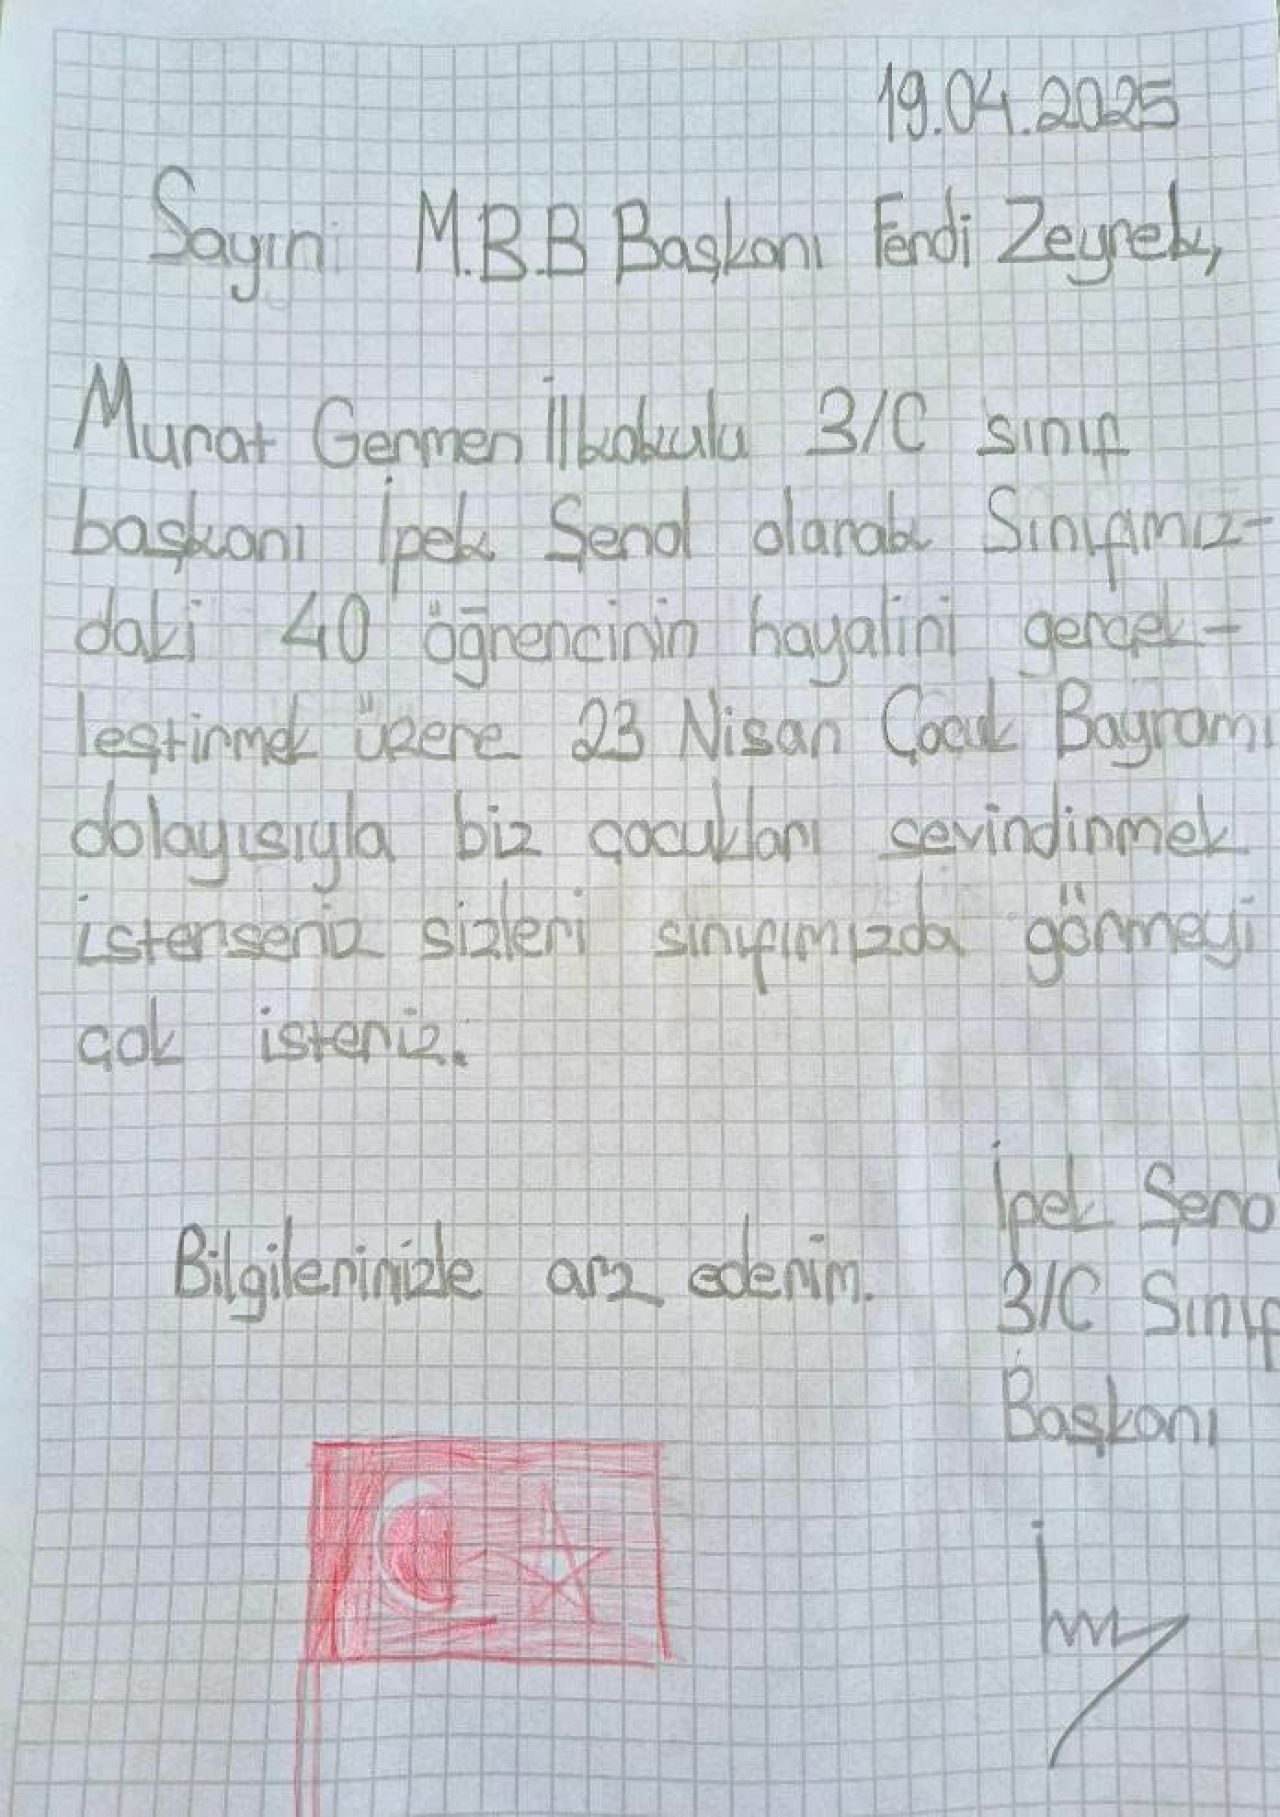 19.04.2025
Sayın M.B.B Başkanı Ferdi Zeyrek,
Murat Germen İlkokulu 3/C sınıf
başkanı İpek Şenol olarak Sınıfımız-
daki 40 öğrencinin hayalini gerçek-
leştirmek üzere 23 Nisan Çocuk Bayramı
dolayısıyla biz çocukları sevindirmek
isterseniz sizleri sınıfımızda görmeyi
çok isteriz.
İpek Şeno
Bilgilerinizle arz ederim.
3/C Sınıf
Başkanı